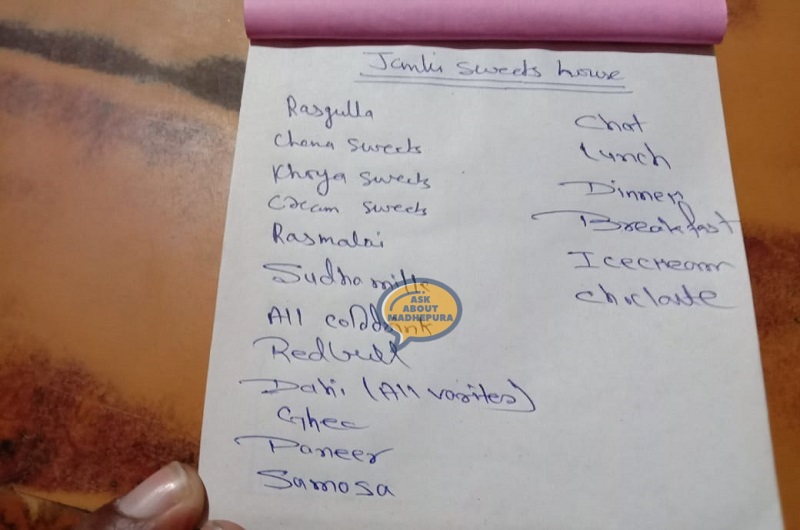 Janki sweets house
Rasgulla
Chana sweets
Khoya sweets
Cream sweets
Rasmalai
Sudha milk
All colddrink
Redbull
Dahi (All varites)
Ghee
Paneer
Samosa
Chat
Lunch
Dinner
Breakfast
Icecream
Choclate
ASK
ABOUT
MADHEPURA